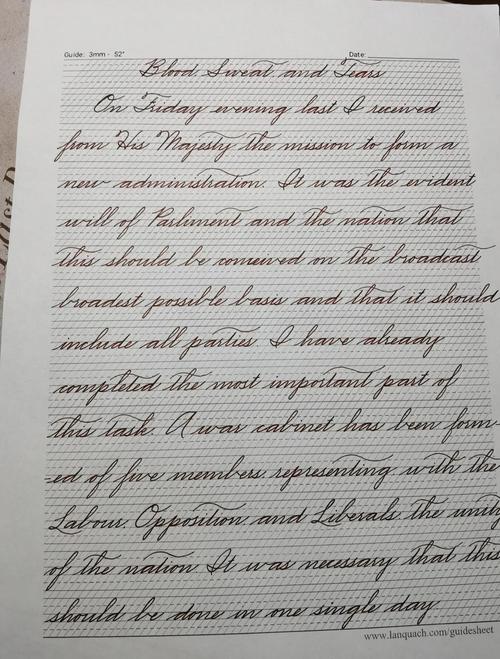 Guide: 3mm - 52° Date:
Blood Sweat and Tears
On Friday evening last I received
from His Majesty the mission to form a
new administration. It was the evident
will of Parliment and the nation that
this should be conceived on the broadcast
broadest possible basis and that it should
include all parties. I have already
completed the most important part of
this task. A war cabinet has been form-
-ed of five members, representing, with the
Labour, Opposition, and Liberals, the unity
of the nation. It was necessary that this
should be done in one single day
www.lanquach.com/guidesheet